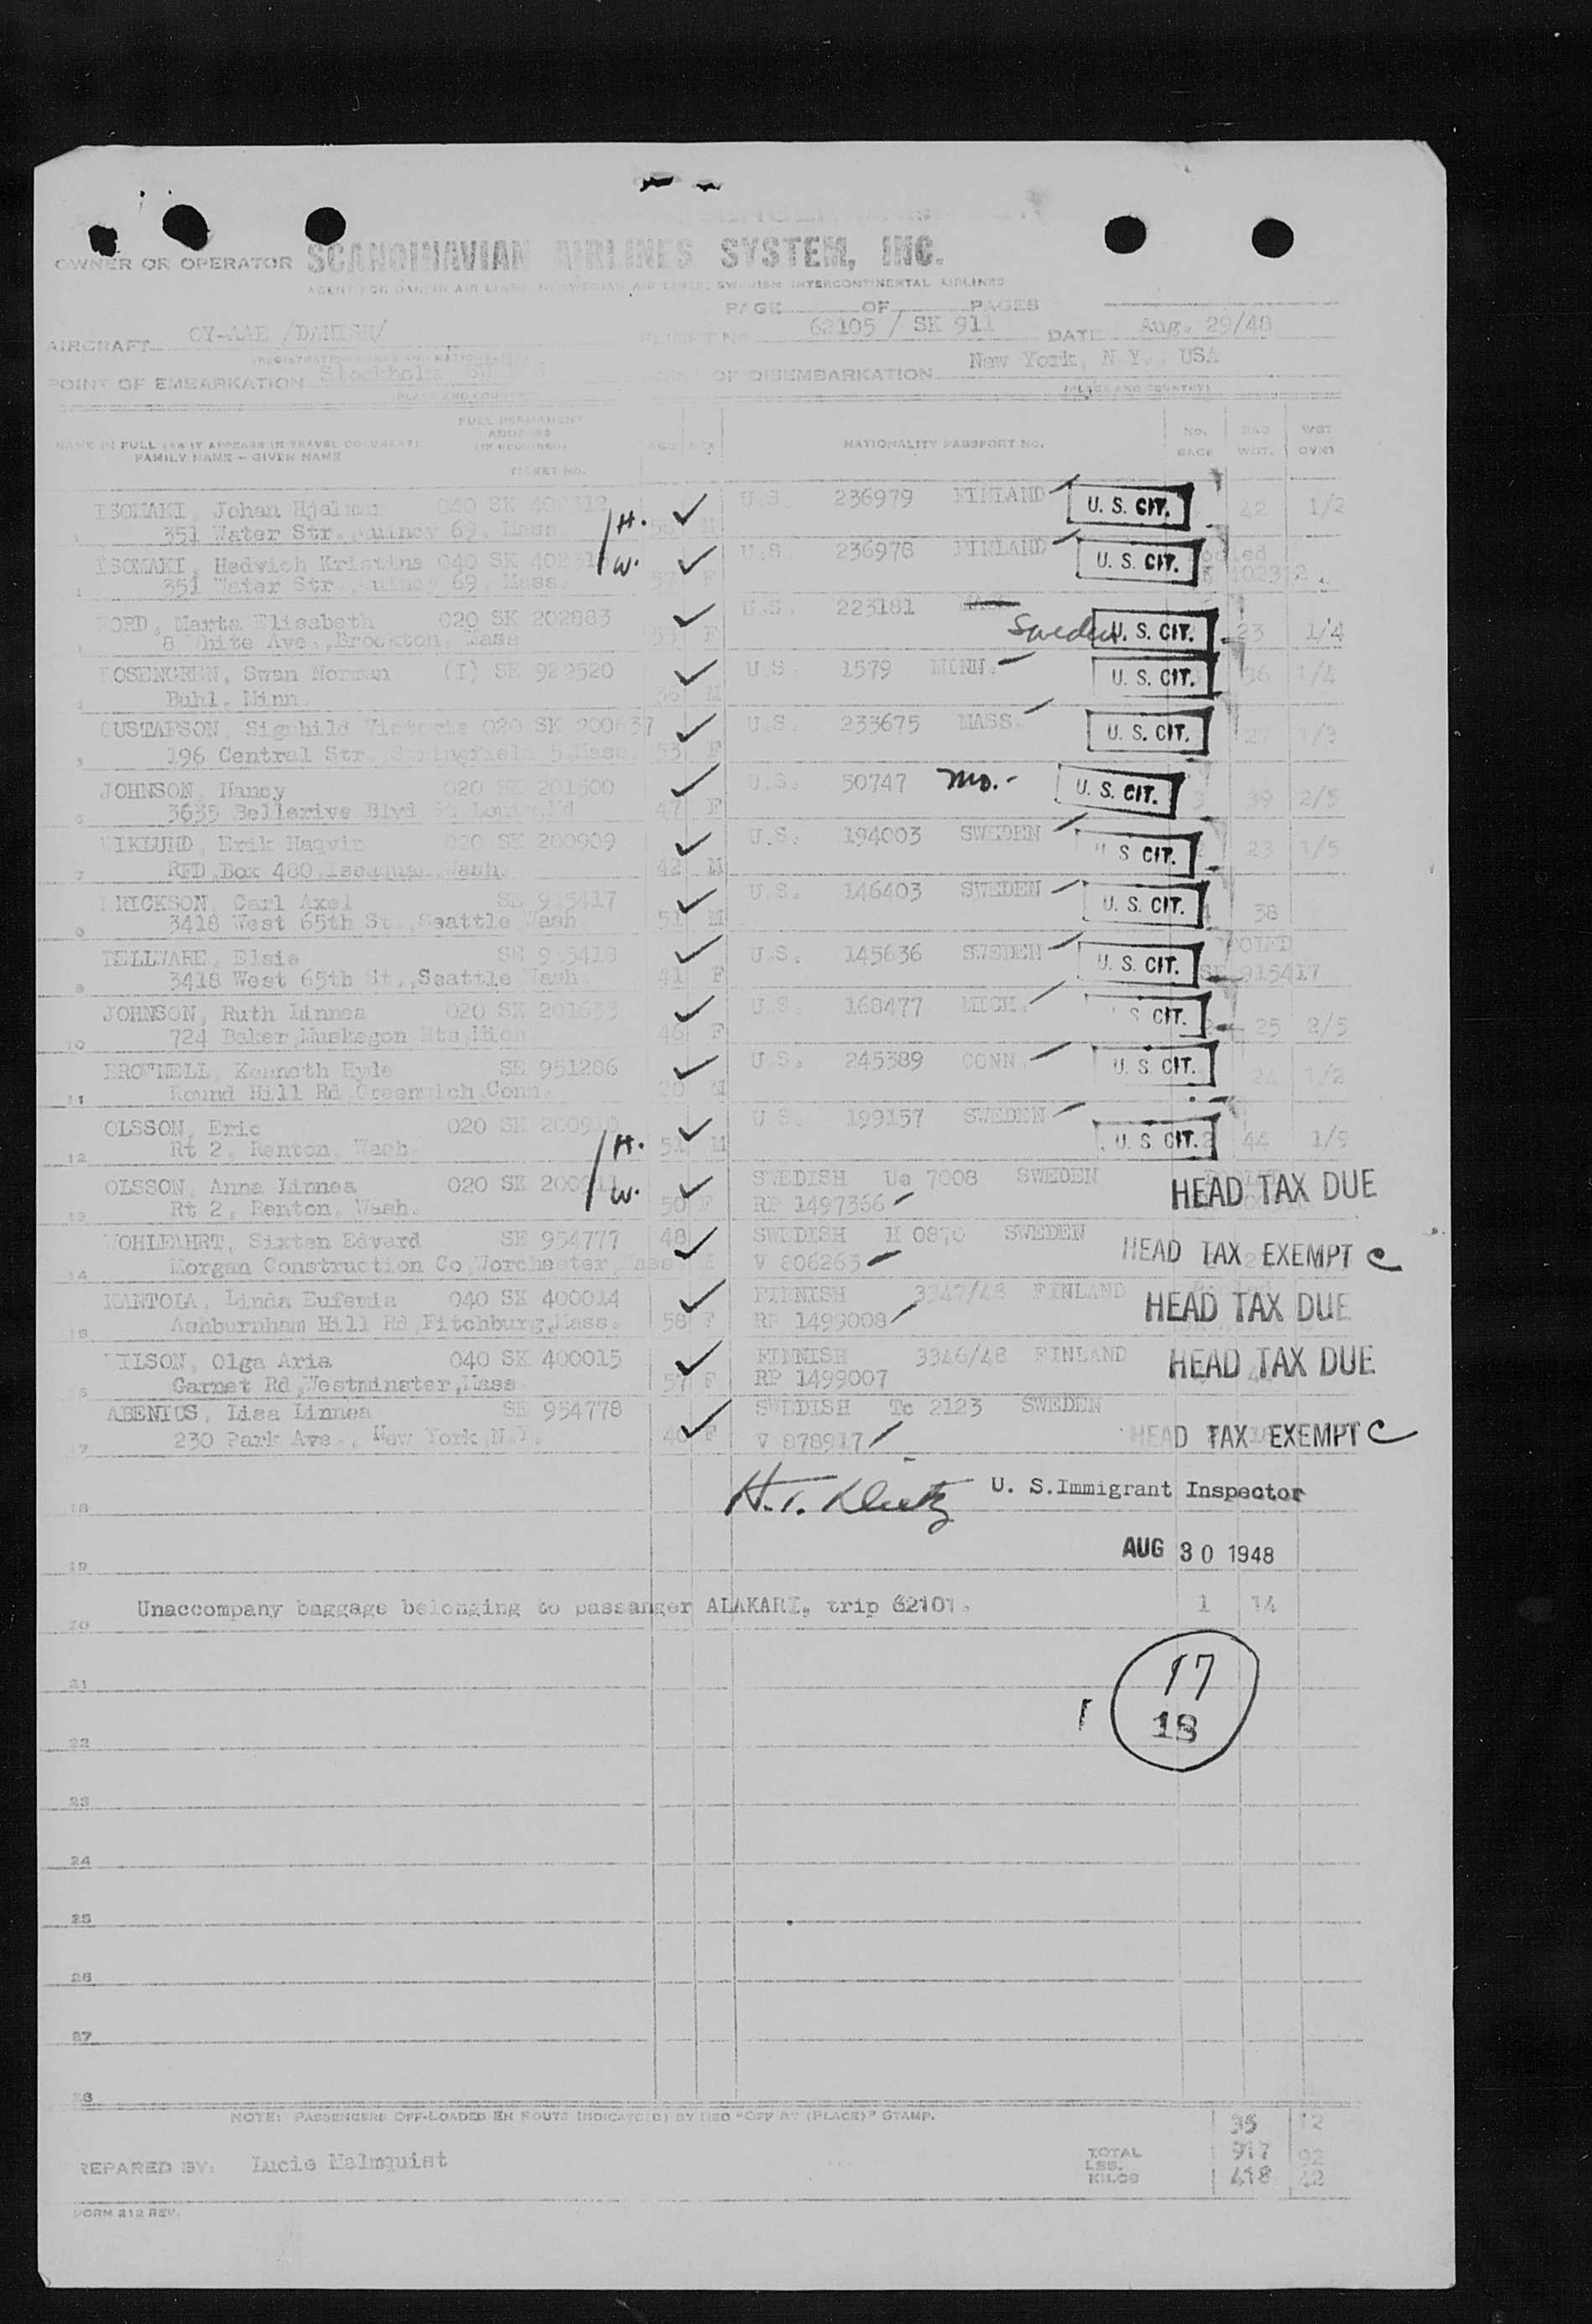 OWNER OR OPERATOR SCANDINAVIAN AIRLINES SYSTEM, INC.
AGENT FOR DANISH AIR LINES, NORWEGIAN AIR LINES, SWEDISH INTERCONTINENTAL AIRLINES
PAGE OF PAGES
AIRCRAFT OY-AAE /DANISH/ 62105 / SK 911 DATE Aug. 29/48
(REGISTRATION MARKS AND NATIONALITY)
POINT OF EMBARKATION Stockholm OF DISEMBARKATION New York, N.Y. USA
(PLACE AND COUNTRY) (PLACE AND COUNTRY)
NAME IN FULL (AS IT APPEARS IN TRAVEL DOCUMENT) FAMILY NAME - GIVEN NAME FULL PERMANENT ADDRESS (IF REQUIRED) TICKET NO. AGE SEX NATIONALITY PASSPORT NO. NO. BAGG BAG WGT. WGT OVWT
ISOMAKI, Johan Hjalmar 040 SK 402312 H. U.S. 236979 FINLAND U. S. CIT. 42 1/2
351 Water Str. Quincy 69, Mass. M
ISOMAKI, Hedvich Kristina 040 SK W. U.S. 236978 FINLAND U. S. CIT.
351 Water Str., Quincy 69, Mass. 57 F
FORD, Marta Elisabeth 020 SK 202883 U.S. 223181 Sweden U. S. CIT. 23 1/4
8 White Ave., Brockton, Mass 53 F
ROSENGREN, Swan Norman (I) SE 922520 U.S. 1579 MINN. U. S. CIT. 36 1/4
Buhl, Minn. 36 M
GUSTAFSON, Sigchild Victoria 020 SK U.S. 233675 MASS. U. S. CIT. 27 1/3
196 Central Str., Springfield 5, Mass. 53 F
JOHNSON, Nancy 020 SK 201500 U.S. 50747 Mo.- U. S. CIT. 3 39 2/5
3635 Bellerive Blvd St Louis, Md 47 F
WIKLUND, Erik Haqvin 020 SK 200909 U.S. 194003 SWEDEN U. S. CIT. 23 1/5
RFD, Box 480, Issaquah, Wash. 42 M
ERICKSON, Carl Axel SE 915417 U.S. 146403 SWEDEN U. S. CIT. 38
3418 West 65th St., Seattle Wash 51 M
BELLWARE, Elsie SE 915418 U.S. 145636 SWEDEN U. S. CIT. POOLED
3418 West 65th St., Seattle Wash. 41 F SE 915417
JOHNSON, Ruth Linnea 020 SK 201633 U.S. 168477 MICH. U. S. CIT. 25 2/5
724 Baker, Muskegon Hts, Mich. 46 F
BROWNELL, Kenneth Hyde SE 951286 U.S. 245389 CONN. U. S. CIT. 24 1/2
Round Hill Rd Greenwich Conn. 20 M
OLSSON, Eric 020 SK 200910 H. U.S. 199157 SWEDEN U. S. CIT. 44 1/9
Rt 2, Renton, Wash. 51 M
OLSSON, Anna Linnea 020 SK 200911 W. SWEDISH Ua 7008 SWEDEN HEAD TAX DUE
Rt 2, Renton, Wash. 50 F RP 1497366
WOHLFAHRT, Sixten Edvard SE 954777 48 SWEDISH H 0870 SWEDEN HEAD TAX EXEMPT C
Morgan Construction Co, Worchester, Mass V 806263
MANTOLA, Linda Eufemia 040 SK 400014 FINNISH 3347/48 FINLAND HEAD TAX DUE
Ashburnham Hill Rd, Fitchburg, Mass. 58 F RP 1499008
WILSON, Olga Aria 040 SK 400015 FINNISH 3346/48 FINLAND HEAD TAX DUE
Garnet Rd, Westminster, Mass 57 F RP 1499007
ABENIUS, Lisa Linnea SE 954778 SWEDISH Tc 2123 SWEDEN
230 Park Ave., New York, N.Y. 40 F V 878917 HEAD TAX EXEMPT C
18 H.T. U. S. Immigrant Inspector
19 AUG 30 1948
Unaccompany baggage belonging to passanger ALAKARI, trip 62101. 1 14
20
21 17
22 18
23
24
25
26
27
28
NOTE: PASSENGERS OFF-LOADED EN ROUTE INDICATE(D) BY RED "OFF AT (PLACE)" STAMP. 35 12
PREPARED BY: Lucie Malmquist TOTAL LBS. 917 92
KILOS 418 42
FORM 212 REV.